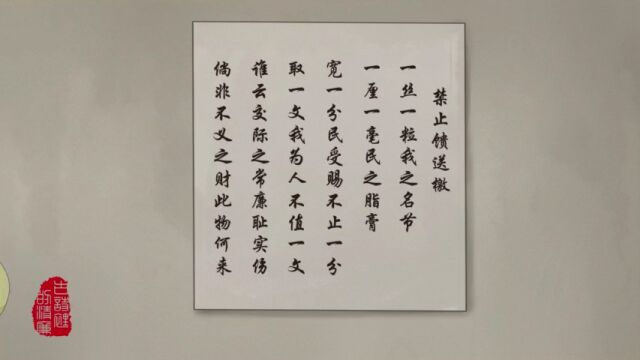 禁止馈送檄
一丝一粒我之名节
一厘一毫民之脂膏
宽一分民受赐不止一分
取一文我为人不值一文
谁云交际之常廉耻实伤
倘非不义之财此物何来
古诗里
的清廉